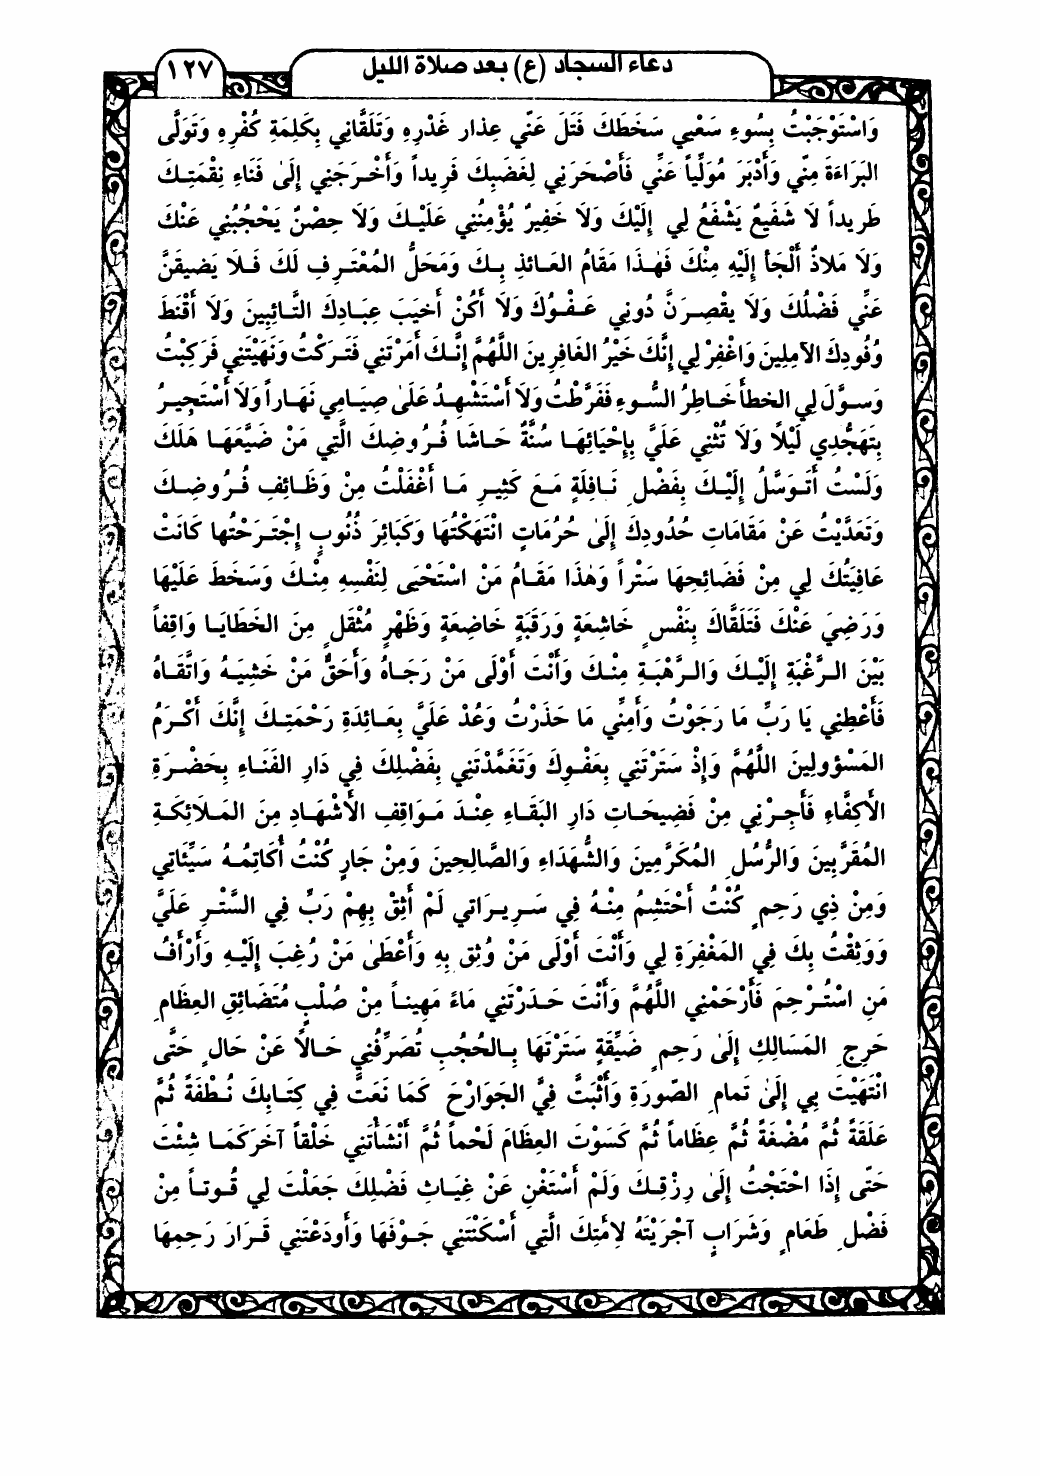 ١٢٧
دعاء السجاد (ع) بعد صلاة الليل
وَاسْتَوْجَبْتُ بِسُوءِ سَعْيِي سَخَطَكَ فَتَلَ عَنِّي عِذَارَ غَدْرِهِ وَتَلَقَّانِي بِكَلِمَةِ كُفْرِهِ وَتَوَلَّى
البَرَاءَةَ مِنِّي وَأَدْبَرَ مُوَلِّياً عَنِّي فَأَصْحَرَنِي لِغَضَبِكَ فَرِيداً وَأَخْرَجَنِي إِلَىٰ فَنَاءِ نِقْمَتِكَ
طَرِيداً لَا شَفِيعٌ يَشْفَعُ لِي إِلَيْكَ وَلَا خَفِيرٌ يُؤْمِنُنِي عَلَيْكَ وَلَا حِصْنٌ يَحْجُبُنِي عَنْكَ
وَلَا مَلاذٌ أَلْجَأُ إِلَيْهِ مِنْكَ فَهٰذَا مَقَامُ العَائذِ بِكَ وَمَحَلُّ المُعْتَرِفِ لَكَ فَلا يَضيقَنَّ
عَنِّي فَضْلُكَ وَلَا يقْصِرَنَّ دُونِي عَفْوُكَ وَلَا أَكُنْ أَخيَبَ عِبَادِكَ التَّائِبِينَ وَلَا أَقْنَطَ
وُفُودِكَ الآمِلِينَ وَاغْفِرْ لِي إِنَّكَ خَيْرُ الغَافِرِينَ اللَّهُمَّ إِنَّكَ أَمَرْتَنِي فَتَرَكْتُ وَنَهَيْتَنِي فَرَكِبْتُ
وَسَوَّلَ لِي الخطأَ خَاطِرُ السُّوءِ فَفَرَّطْتُ وَلَا أَسْتَشْهِدُ عَلَىٰ صِيَامِي نَهَاراً وَلَا أَسْتَجِيرُ
بِتَهَجُّدِي لَيْلاً وَلَا تُثْنِي عَلَيَّ بِإِحْيَائِهَا سُنَّةٌ حَاشَا فُرُوضِكَ الَّتِي مَنْ ضَيَّعَهَا هَلَكَ
وَلَسْتُ أَتَوَسَّلُ إِلَيْكَ بِفَضْلِ نَافِلَةٍ مَعَ كَثِيرِ مَا أَغْفَلْتُ مِنْ وَظَائِفِ فُرُوضِكَ
وَتَعَدَّيْتُ عَنْ مَقَامَاتِ حُدُودِكَ إِلَىٰ حُرُمَاتٍ انْتَهَكْتُهَا وَكَبَائِرَ ذُنُوبٍ إِجْتَرَحْتُها كَانَتْ
عَافِيَتُكَ لِي مِنْ فَضَائِحِهَا سَتْراً وَهٰذَا مَقَامُ مَنْ اسْتَحْيَى لِنَفْسِهِ مِنْكَ وَسَخَطَ عَلَيْهَا
وَرَضِيَ عَنْكَ فَتَلَقَّاكَ بِنَفْسٍ خَاشِعَةٍ وَرَقَبَةٍ خَاضِعَةٍ وَظَهْرٍ مُثْقَلٍ مِنَ الخَطَايَا وَاقِفاً
بَيْنَ الرَّغْبَةِ إِلَيْكَ وَالرَّهْبَةِ مِنْكَ وَأَنْتَ أَوْلَى مَنْ رَجَاهُ وَأَحَقُّ مَنْ خَشِيَهُ وَاتَّقَاهُ
فَأَعْطِنِي يَا رَبِّ مَا رَجَوْتُ وَأَمِنِّي مَا حَذَرْتُ وَعُدْ عَلَيَّ بِعَائِدَةِ رَحْمَتِكَ إِنَّكَ أَكْرَمُ
المَسْؤولِينَ اللَّهُمَّ وَإِذْ سَتَرْتَنِي بِعَفْوِكَ وَتَغَمَّدْتَنِي بِفَضْلِكَ فِي دَارِ الفَنَاءِ بِحَضْرَةِ
الأَكْفَّاءِ فَأَجِرْنِي مِنْ فَضِيحَاتِ دَارِ البَقَاءِ عِنْدَ مَوَاقِفِ الأَشْهَادِ مِنَ المَلَائِكَةِ
المُقَرَّبِينَ وَالرُّسُلِ المُكَرَّمِينَ وَالشُّهَدَاءِ وَالصَّالِحِينَ وَمِنْ جَارٍ كُنْتُ أُكَاتِمُهُ سَيِّئَاتِي
وَمِنْ ذِي رَحِمٍ كُنْتُ أَحْتَشِمُ مِنْهُ فِي سَرِيرَاتِي لَمْ أَثِقْ بِهِمْ رَبِّ فِي السَّتْرِ عَلَيَّ
وَوَثِقْتُ بِكَ فِي المَغْفِرَةِ لِي وَأَنْتَ أَوْلَى مَنْ وُثِقَ بِهِ وَأَعْطَىٰ مَنْ رُغِبَ إِلَيْهِ وَأَرْأَفُ
مَنِ اسْتُرْحِمَ فَأَرْحَمْنِي اللَّهُمَّ وَأَنْتَ حَدَرْتَنِي مَاءً مَهِيناً مِنْ صُلْبٍ مُتَضَائِقِ العِظَامِ
حَرِجِ المَسَالِكِ إِلَىٰ رَحِمٍ ضَيِّقَةٍ سَتَرْتَهَا بِالحُجُبِ تُصَرِّفُنِي حَالاً عَنْ حَالٍ حَتَّى
انْتَهَيْتَ بِي إِلَىٰ تَمامِ الصّورَةِ وَأَثْبَتَّ فِيَّ الجَوَارْحَ كَمَا نَعَتَّ فِي كِتَابِكَ نُطْفَةً ثُمَّ
عَلَقَةً ثُمَّ مُضْغَةً ثُمَّ عِظَاماً ثُمَّ كَسَوْتَ العِظَامَ لَحْماً ثُمَّ أَنْشَأْتَنِي خَلْقاً آخَرَ كَمَا شِئْتَ
حَتّى إِذَا احْتَجْتُ إِلَىٰ رِزْقِكَ وَلَمْ أَسْتَغْنِ عَنْ غِيَاثِ فَضْلِكَ جَعَلْتَ لِي قُوتاً مِنْ
فَضْلِ طَعَامٍ وَشَرَابٍ آجْرَيْتَهُ لِامَتِكَ الَّتِي أَسْكَنْتَنِي جَوْفَهَا وَأَودَعْتَنِي قَرَارَ رَحِمِهَا